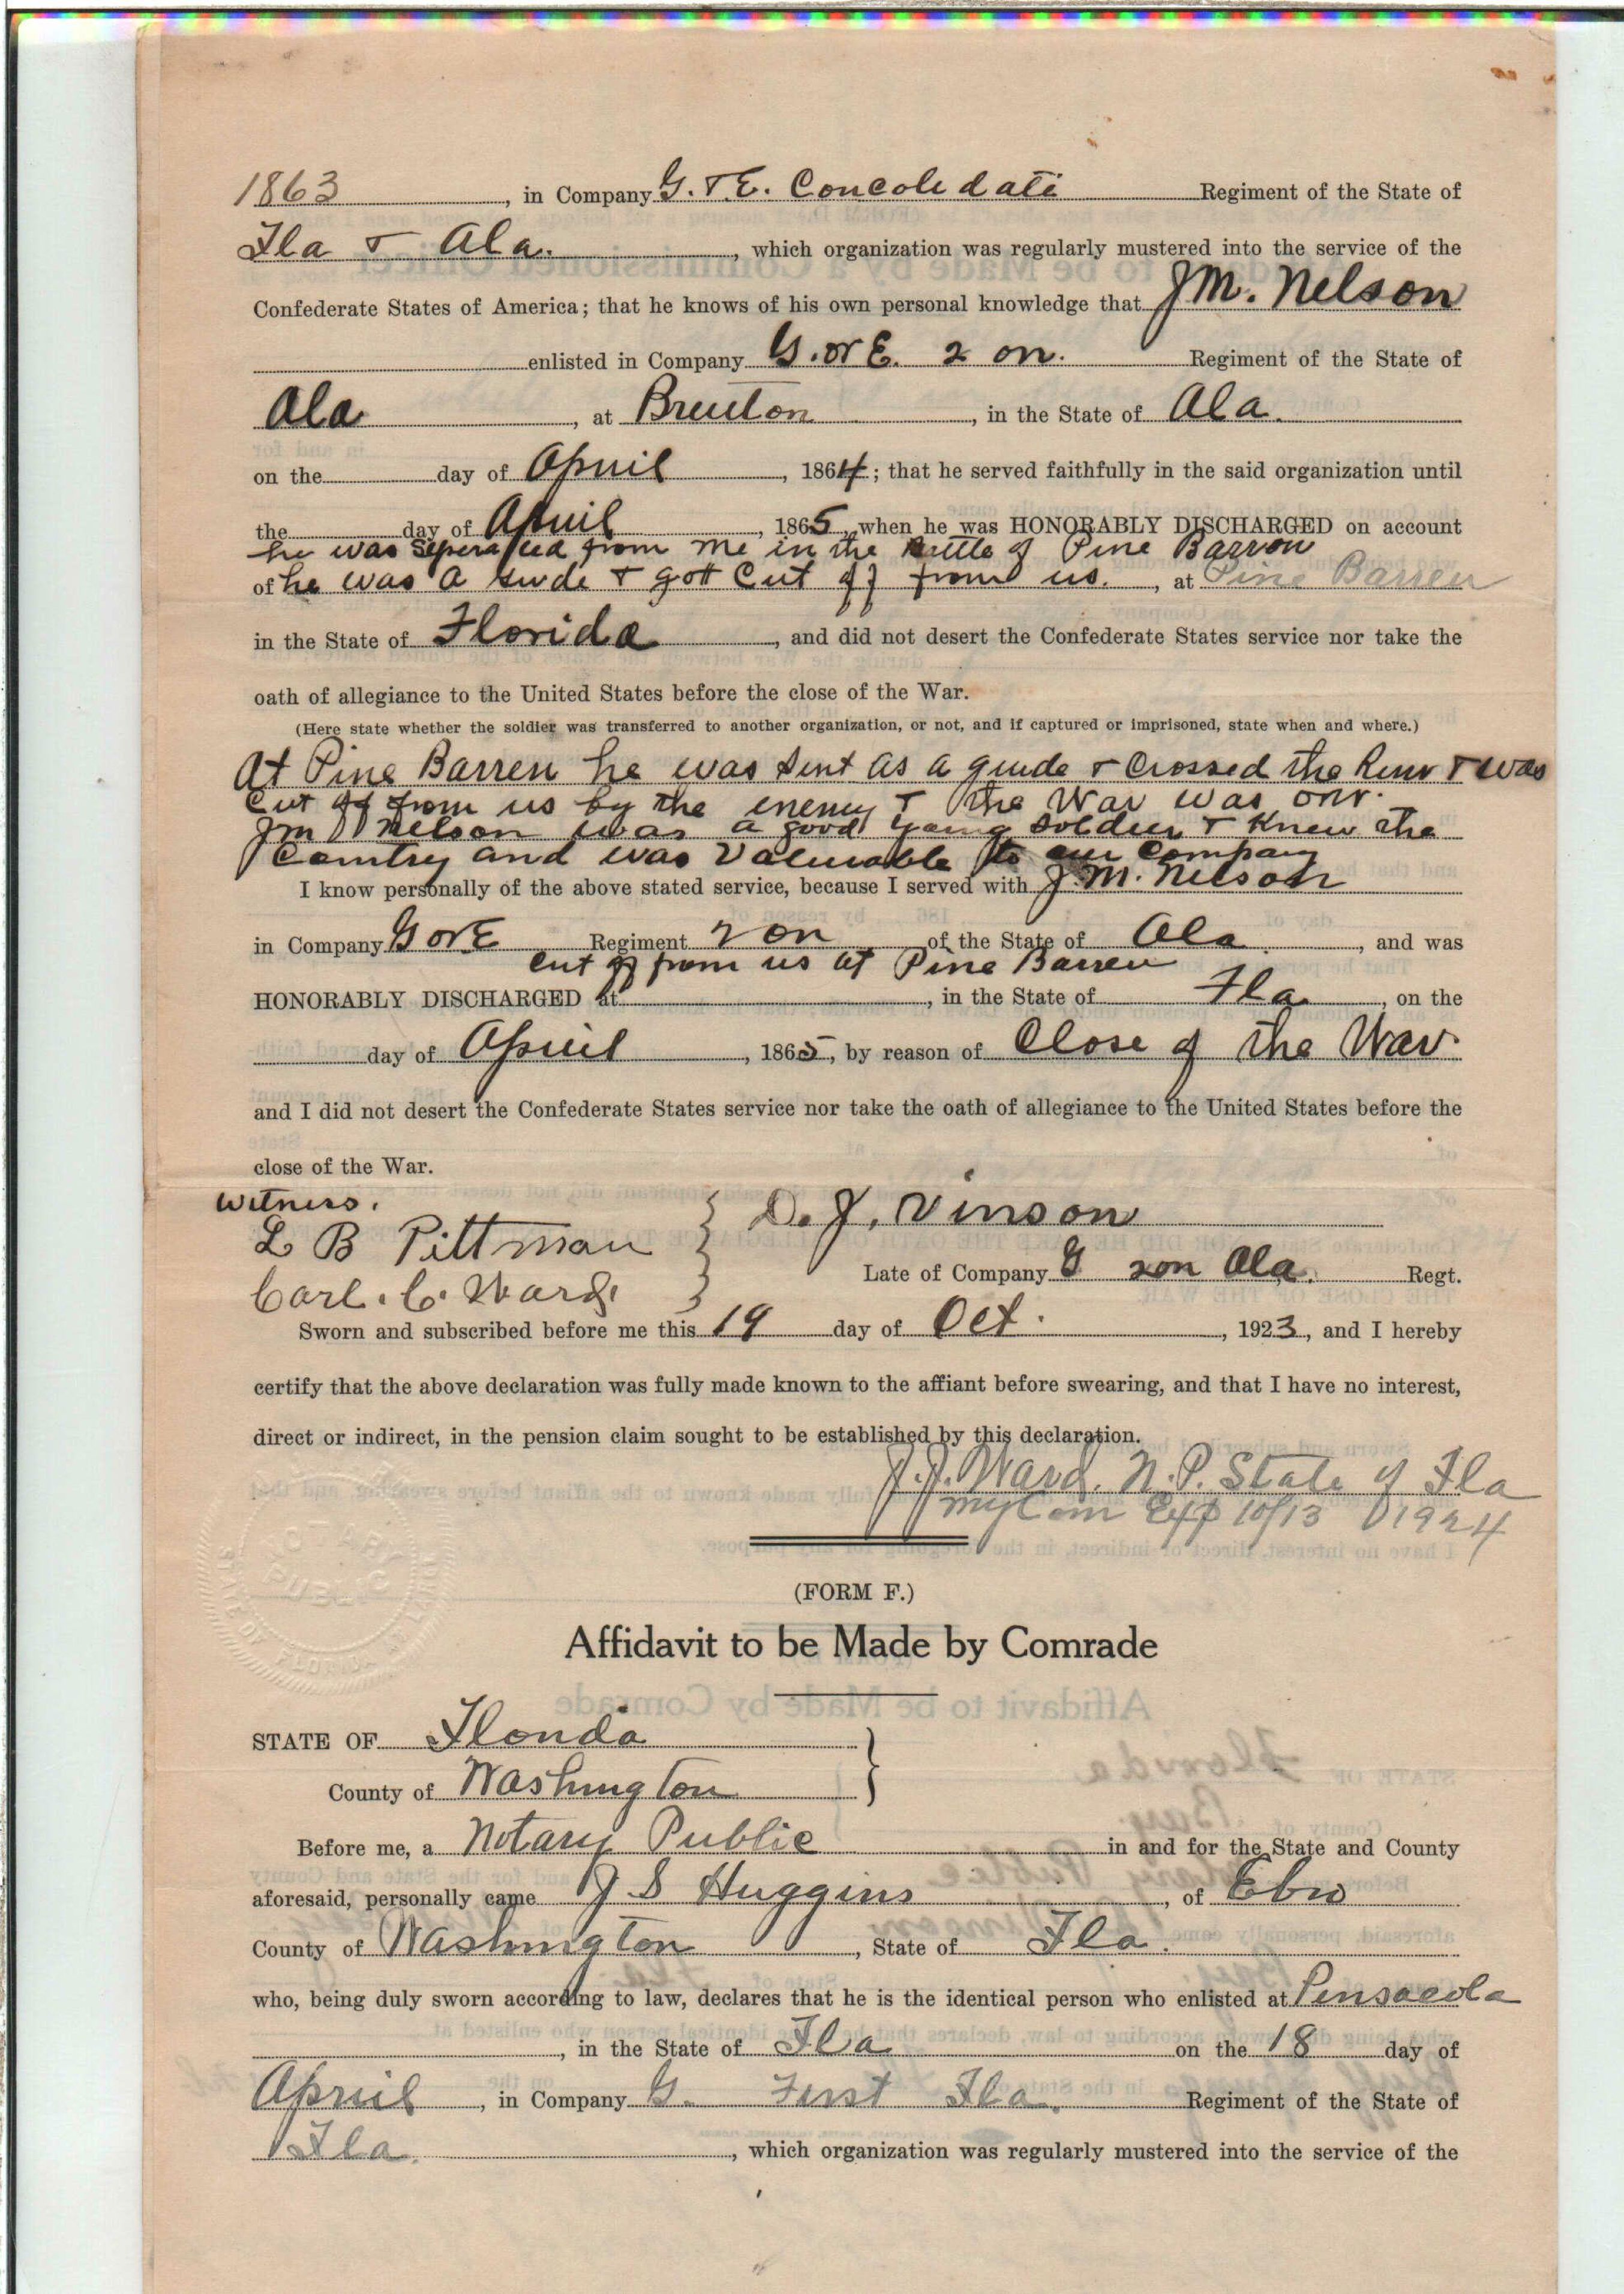 1863, in Company G. & E. Concolidati Regiment of the State of
Fla & Ala., which organization was regularly mustered into the service of the
Confederate States of America; that he knows of his own personal knowledge that J M. Nelson
enlisted in Company G. or E. 2 on. Regiment of the State of
Ala, at Bruton, in the State of Ala.
on the day of April, 1864; that he served faithfully in the said organization until
the day of April, 1865, when he was HONORABLY DISCHARGED on account
he was seperated from me in the Battle of Pine Barron
of he was a guide & gott Cut off from us., at Pine Barren
in the State of Florida, and did not desert the Confederate States service nor take the
oath of allegiance to the United States before the close of the War.
(Here state whether the soldier was transferred to another organization, or not, and if captured or imprisoned, state when and where.)
At Pine Barren he was sent as a guide & Crossed the River & was
Cut off from us by the enemy & the War was over.
J M Nelson was a good young soldier & Knew the
Country and was Valuable to our Company
I know personally of the above stated service, because I served with J. M. Nelson
in Company G or E Regiment 2 on of the State of Ala, and was
Cut off from us at Pine Barren
HONORABLY DISCHARGED at, in the State of Fla., on the
day of April, 1865, by reason of Close of the War.
and I did not desert the Confederate States service nor take the oath of allegiance to the United States before the
close of the War.
Witness.
L B Pittman
D. J. Vinson
Carl. C. Ward.
Late of Company G 2on Ala. Regt.
Sworn and subscribed before me this 19 day of Oct., 1923, and I hereby
certify that the above declaration was fully made known to the affiant before swearing, and that I have no interest,
direct or indirect, in the pension claim sought to be established by this declaration.
J. J. Ward. N. P. State of Fla
My Com Exp 10/13 1924
NOTARY PUBLIC
STATE OF FLORIDA
(FORM F.)
Affidavit to be Made by Comrade
STATE OF Florida
County of Washington
Before me, a Notary Public in and for the State and County
aforesaid, personally came J S Huggins, of Ebro
County of Washington, State of Fla.
who, being duly sworn according to law, declares that he is the identical person who enlisted at Pensacola
, in the State of Fla on the 18 day of
April, in Company G. First Fla. Regiment of the State of
Fla., which organization was regularly mustered into the service of the